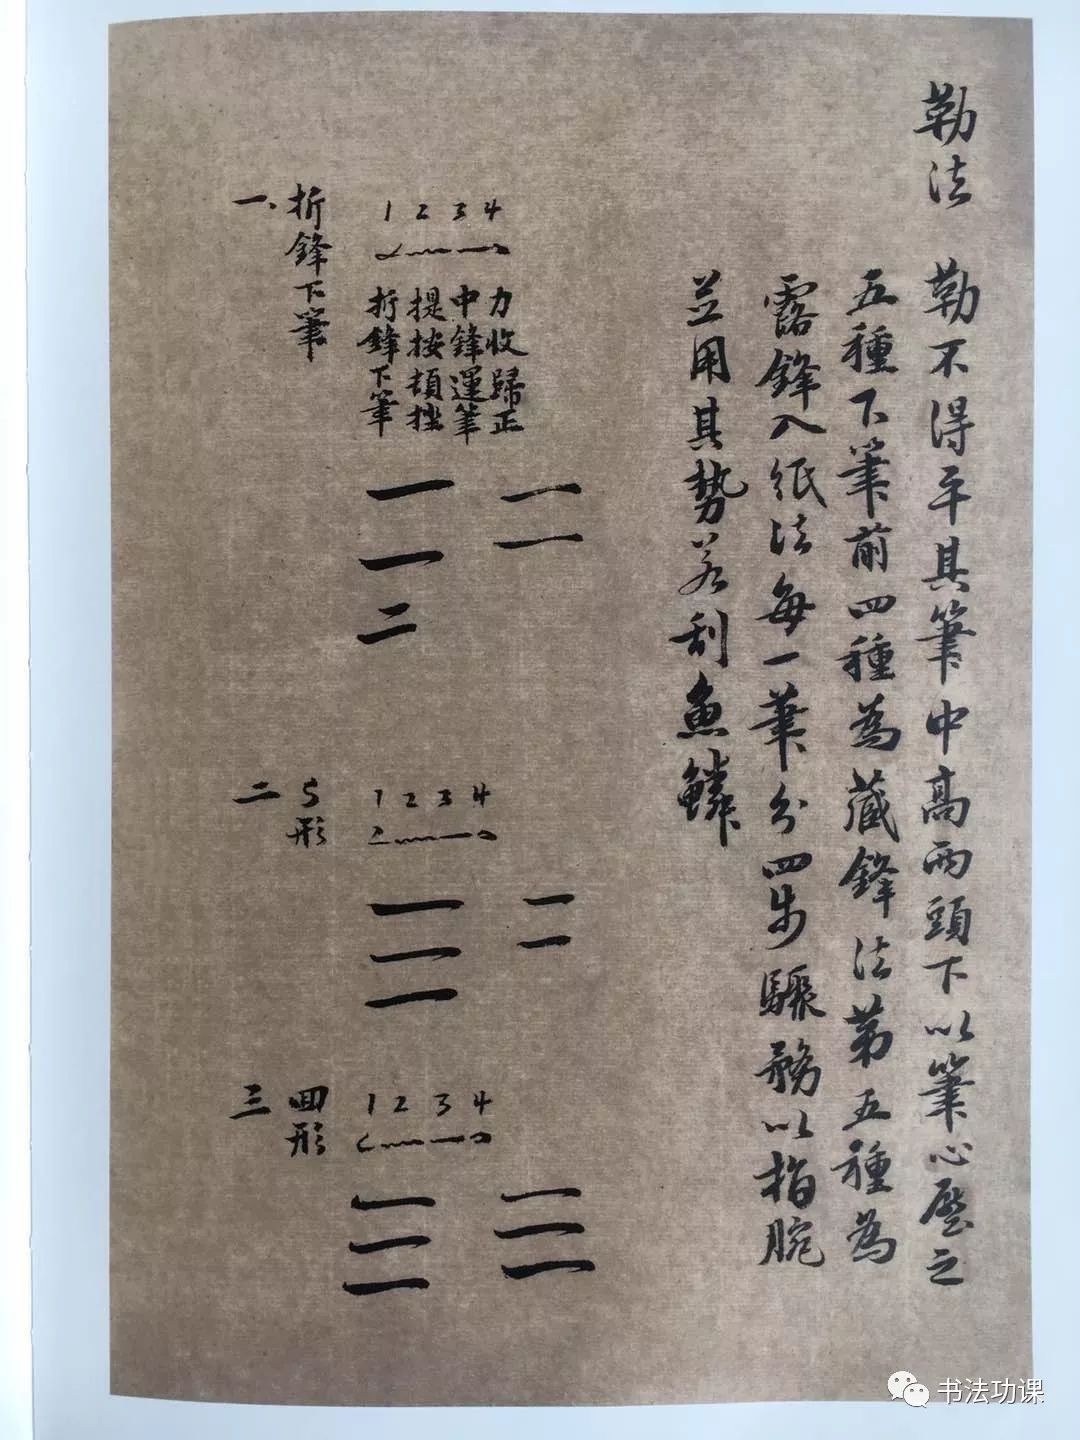 勒法 勒不得平其筆中高兩頭下以筆心壓之
五種下筆前四種為藏鋒法第五種為
露鋒入紙法每一筆分四步驟務以指腕
並用其勢若刮魚鱗
一、折鋒下筆
1 2 3 4
力收歸正
中鋒運筆
提按頓挫
折鋒下筆
二 5形
1 2 3 4
三 回形
1 2 3 4
书法功课